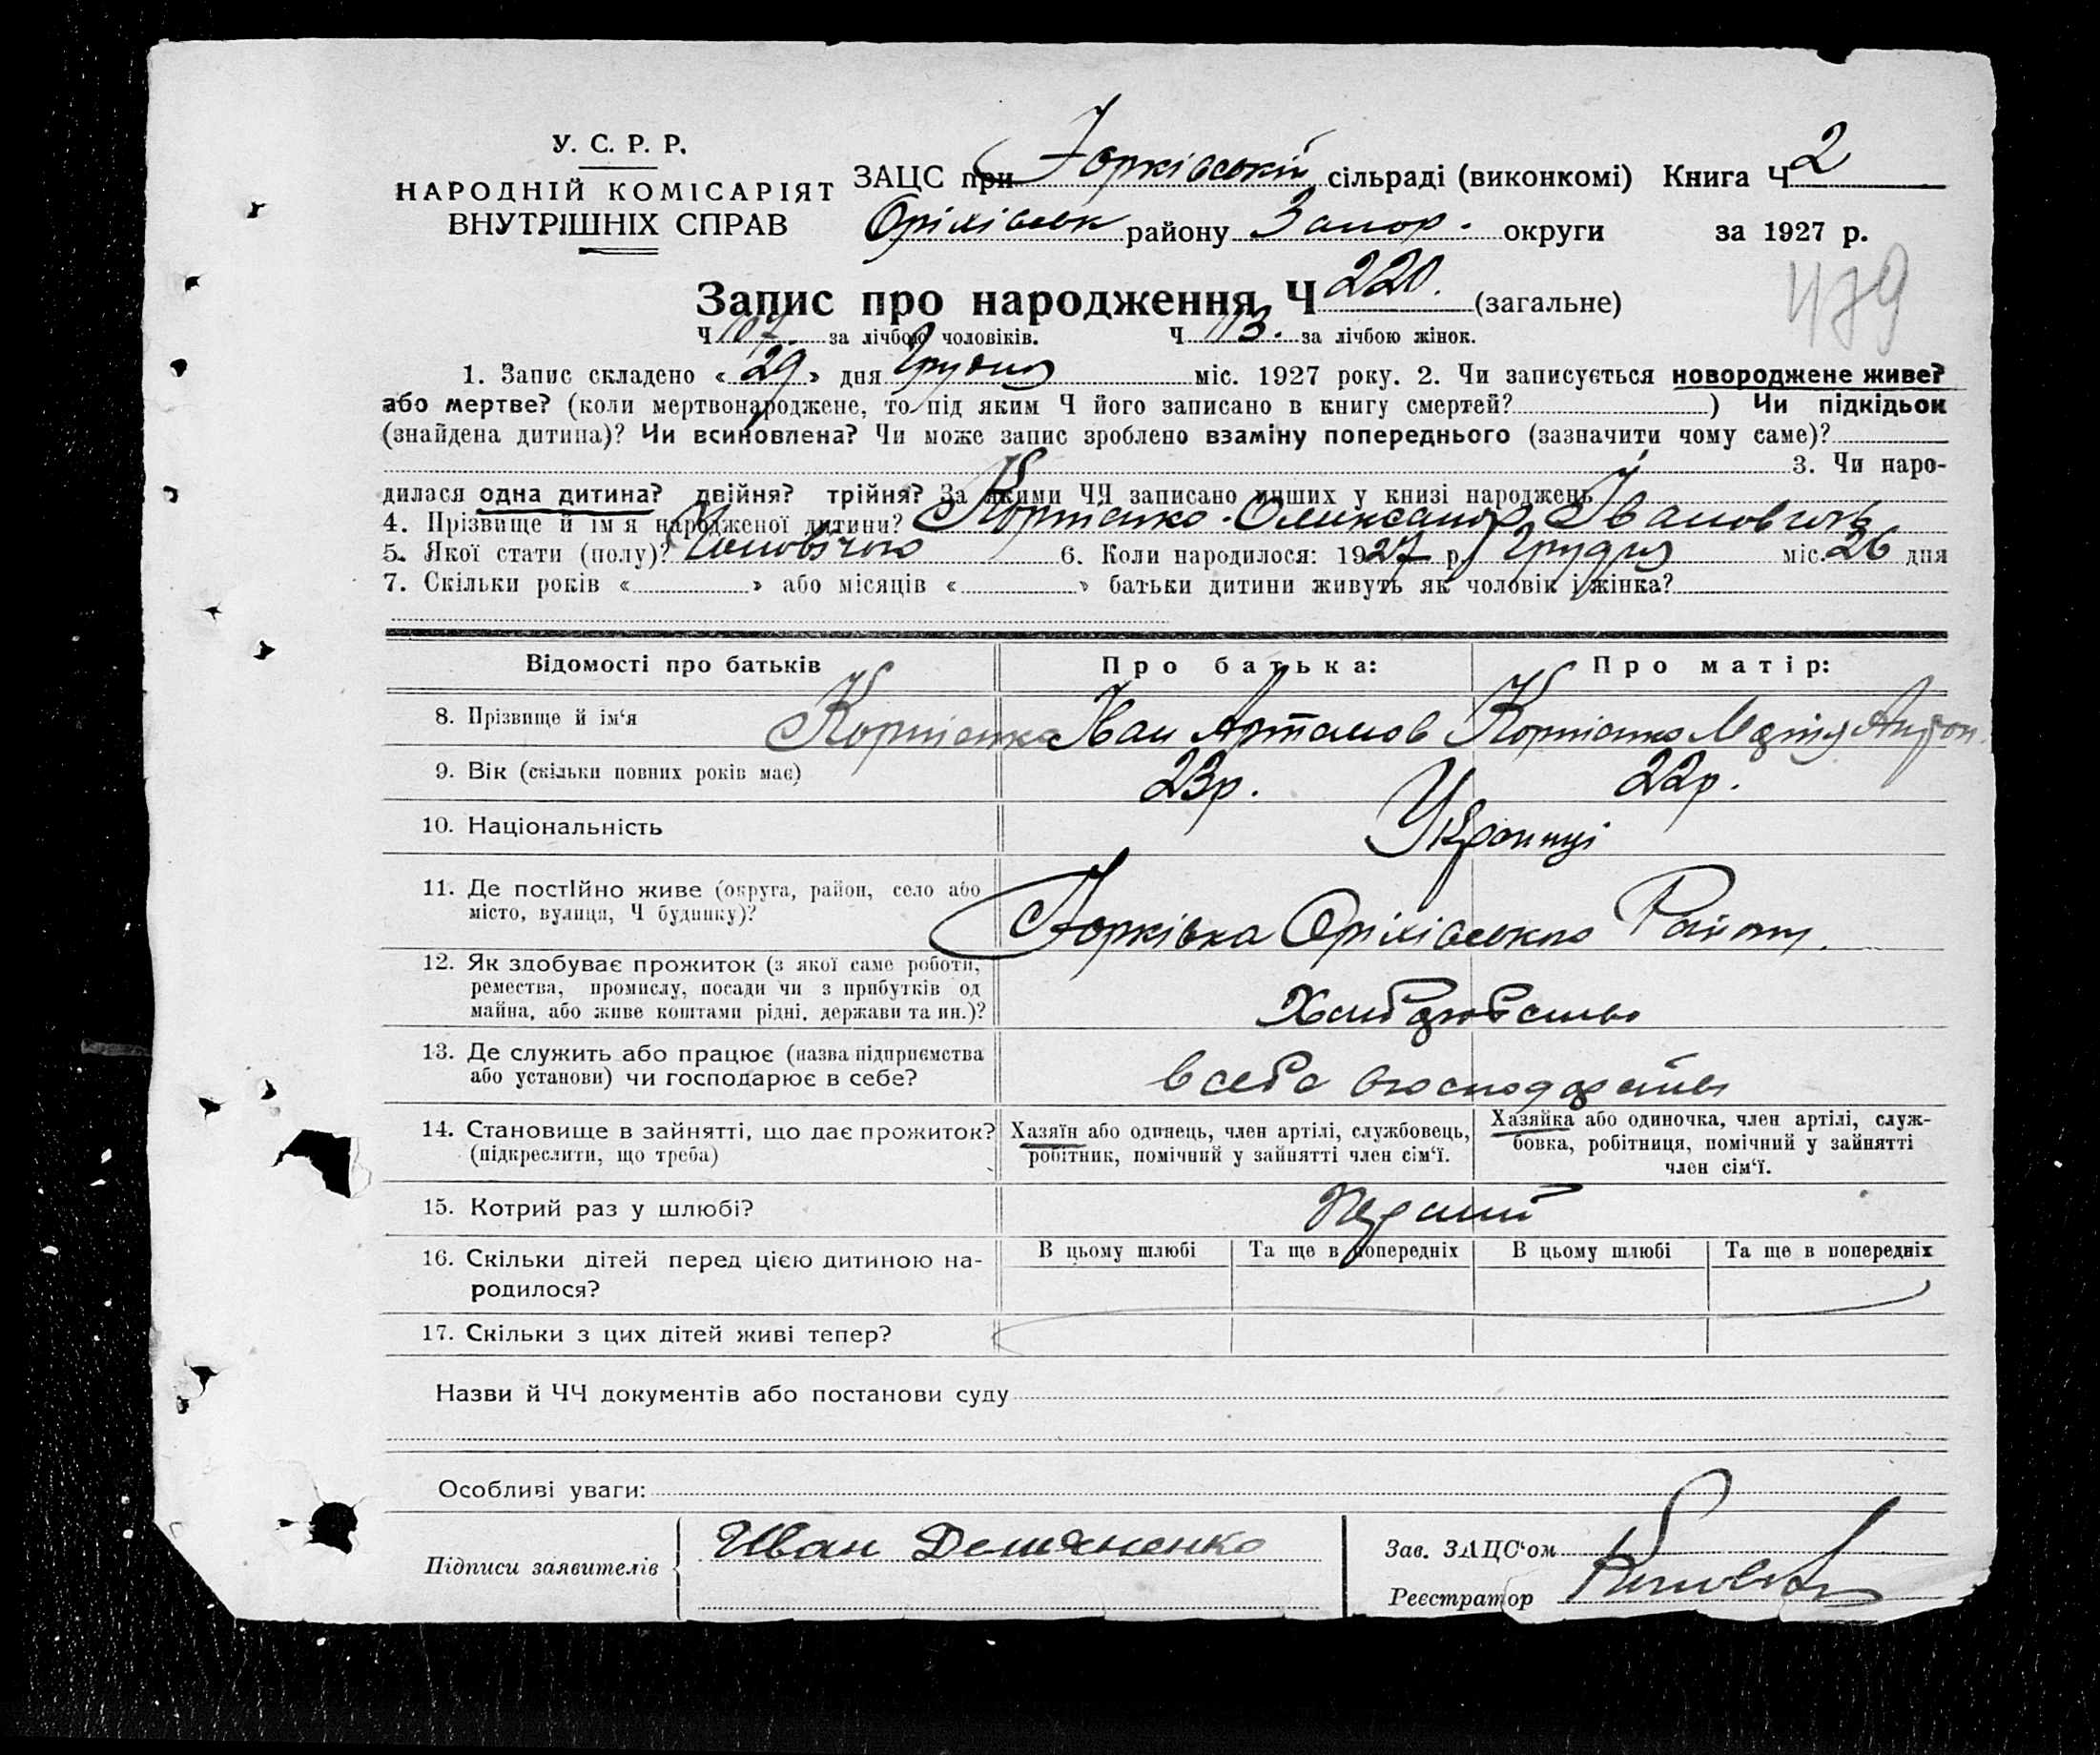 У. С. Р. Р.
НАРОДНІЙ КОМІСАРІЯТ
ВНУТРІШНІХ СПРАВ
ЗАЦС при Юрківській сільраді (виконкомі) Книга Ч 2
Оріхівськ району Запор. округи за 1927 р.
479
Запис про народження Ч 220. (загальне)
Ч 107. за лічбою чоловіків. Ч 113. за лічбою жінок.
1. Запис складено « 29 » дня Грудня міс. 1927 року. 2. Чи записується новороджене живе?
або мертве? (коли мертвонароджене, то під яким Ч його записано в книгу смертей? ) Чи підкідьок
(знайдена дитина)? Чи всиновлена? Чи може запис зроблено взаміну попереднього (зазначити чому саме)?
3. Чи наро-
дилася одна дитина? двійня? трійня? За якими ЧЧ записано инших у книзі народжень
4. Прізвище й ім'я народженої дитини? Олександр Івановичь
5. Якої стати (полу)? Чоловічого 6. Коли народилося: 1927 р. Грудня міс. 26 дня
7. Скільки років « » або місяців « » батьки дитини живуть як чоловік і жінка?
Відомості про батьків
Про батька:
Про матір:
8. Прізвище й ім'я
Іван Артамов
Марія Антон.
9. Вік (скільки повних років має)
23р.
22р.
10. Національність
Українці
11. Де постійно живе (округа, район, село або
місто, вулиця, Ч будинку)?
Юрківка Оріхівського Району.
12. Як здобуває прожиток (з якої саме роботи,
ремества, промислу, посади чи з прибутків од
майна, або живе коштами рідні, держави та ин.)?
Хліборобство
13. Де служить або працює (назва підприємства
або установи) чи господарює в себе?
в себе
14. Становище в зайнятті, що дає прожиток?
(підкреслити, що треба)
Хазяїн або одинець, член артілі, службовець,
робітник, помічний у зайнятті член сім'ї.
Хазяйка або одиночка, член артілі, служ-
бовка, робітниця, помічний у зайнятті
член сім'ї.
15. Котрий раз у шлюбі?
Перший
16. Скільки дітей перед цією дитиною на-
родилося?
В цьому шлюбі
Та ще в попередніх
В цьому шлюбі
Та ще в попередніх
17. Скільки з цих дітей живі тепер?
Назви й ЧЧ документів або постанови суду
Особливі уваги:
Підписи заявителів
Иван
Зав. ЗАЦС'ом
Реєстратор